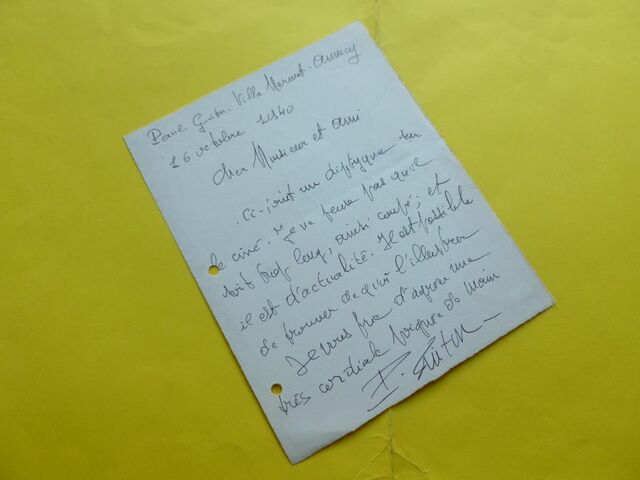 Paul Guiton - Villa Mermet - Annecy
16 octobre 1940
Cher Monsieur et ami
Ci-joint un diptyque sur
le ciné. Je ne pense pas qu'il
soit trop long, ainsi coupé; et
il est d'actualité. Il est possible
de trouver de quoi l'illustrer
Je vous prie d'agréer une
très cordiale poignée de main
P. Guiton